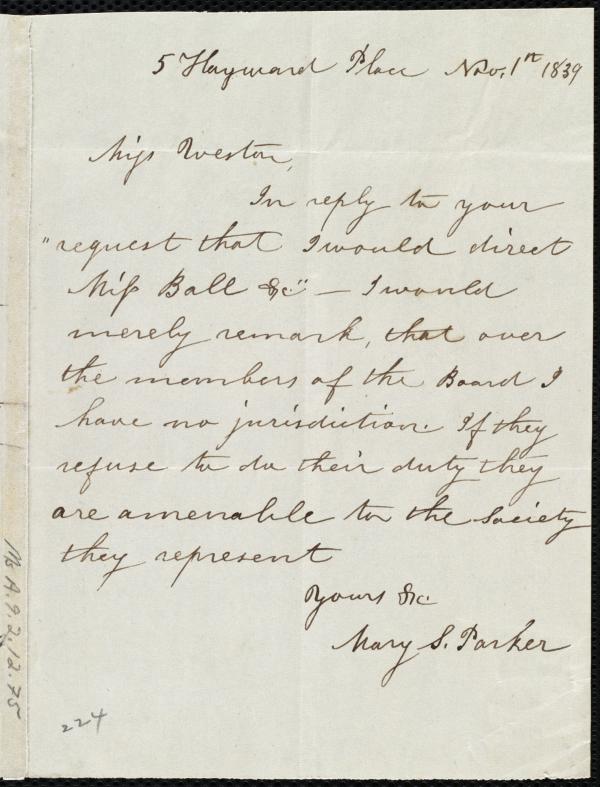 5 Hayward Place Nov. 1st 1839
Miss Weston,
In reply to your
"request that I would direct
Miss Ball &c" — I would
merely remark, that over
the members of the Board I
have no jurisdiction. If they
refuse to do their duty they
are amenable to the Society
they represent
Yours &c.
Mary S. Parker
224
Ms A.9.2.12.75